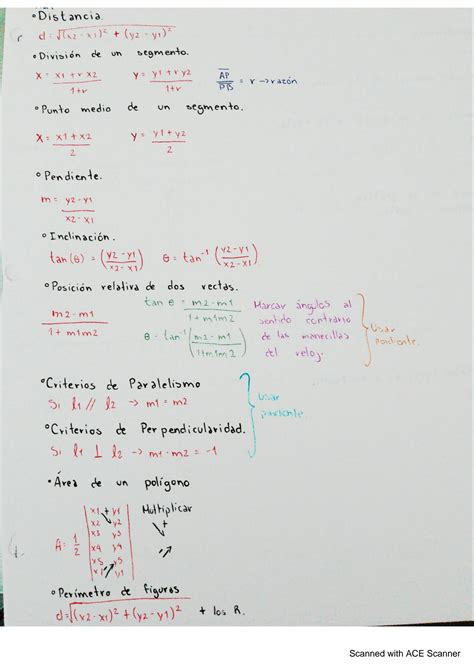 °Distancia.
d = √(x2 - x1)² + (y2 - y1)²
°División de un segmento.
x = x1 + r x2 / 1+r   y = y1 + r y2 / 1+r   AP / PB = r → razón
°Punto medio de un segmento.
x = x1 + x2 / 2   y = y1 + y2 / 2
°Pendiente.
m = y2 - y1 / x2 - x1
°Inclinación.
tan (θ) = (y2 - y1 / x2 - x1)   θ = tan⁻¹ (y2 - y1 / x2 - x1)
°Posición relativa de dos rectas.
m2 - m1 / 1 + m1m2   tan θ = m2 - m1 / 1 + m1m2
θ = tan⁻¹ (m2 - m1 / 1+m1m2)
Marcar ángulos al
sentido contrario
de las manecillas
del reloj.
Usar
pendiente.
°Criterios de Paralelismo
Si l1 // l2 → m1 = m2
Usar
pendiente.
°Criterios de Perpendicularidad.
Si l1 ⊥ l2 → m1 · m2 = -1
°Área de un polígono
A = 1/2 | x1 y1 | Multiplicar
x2 y2 +
x3 y3
x4 y4
x5 y5
x1 y1
°Perímetro de figuras
d = √(x2 - x1)² + (y2 - y1)² + los R.
Scanned with ACE Scanner